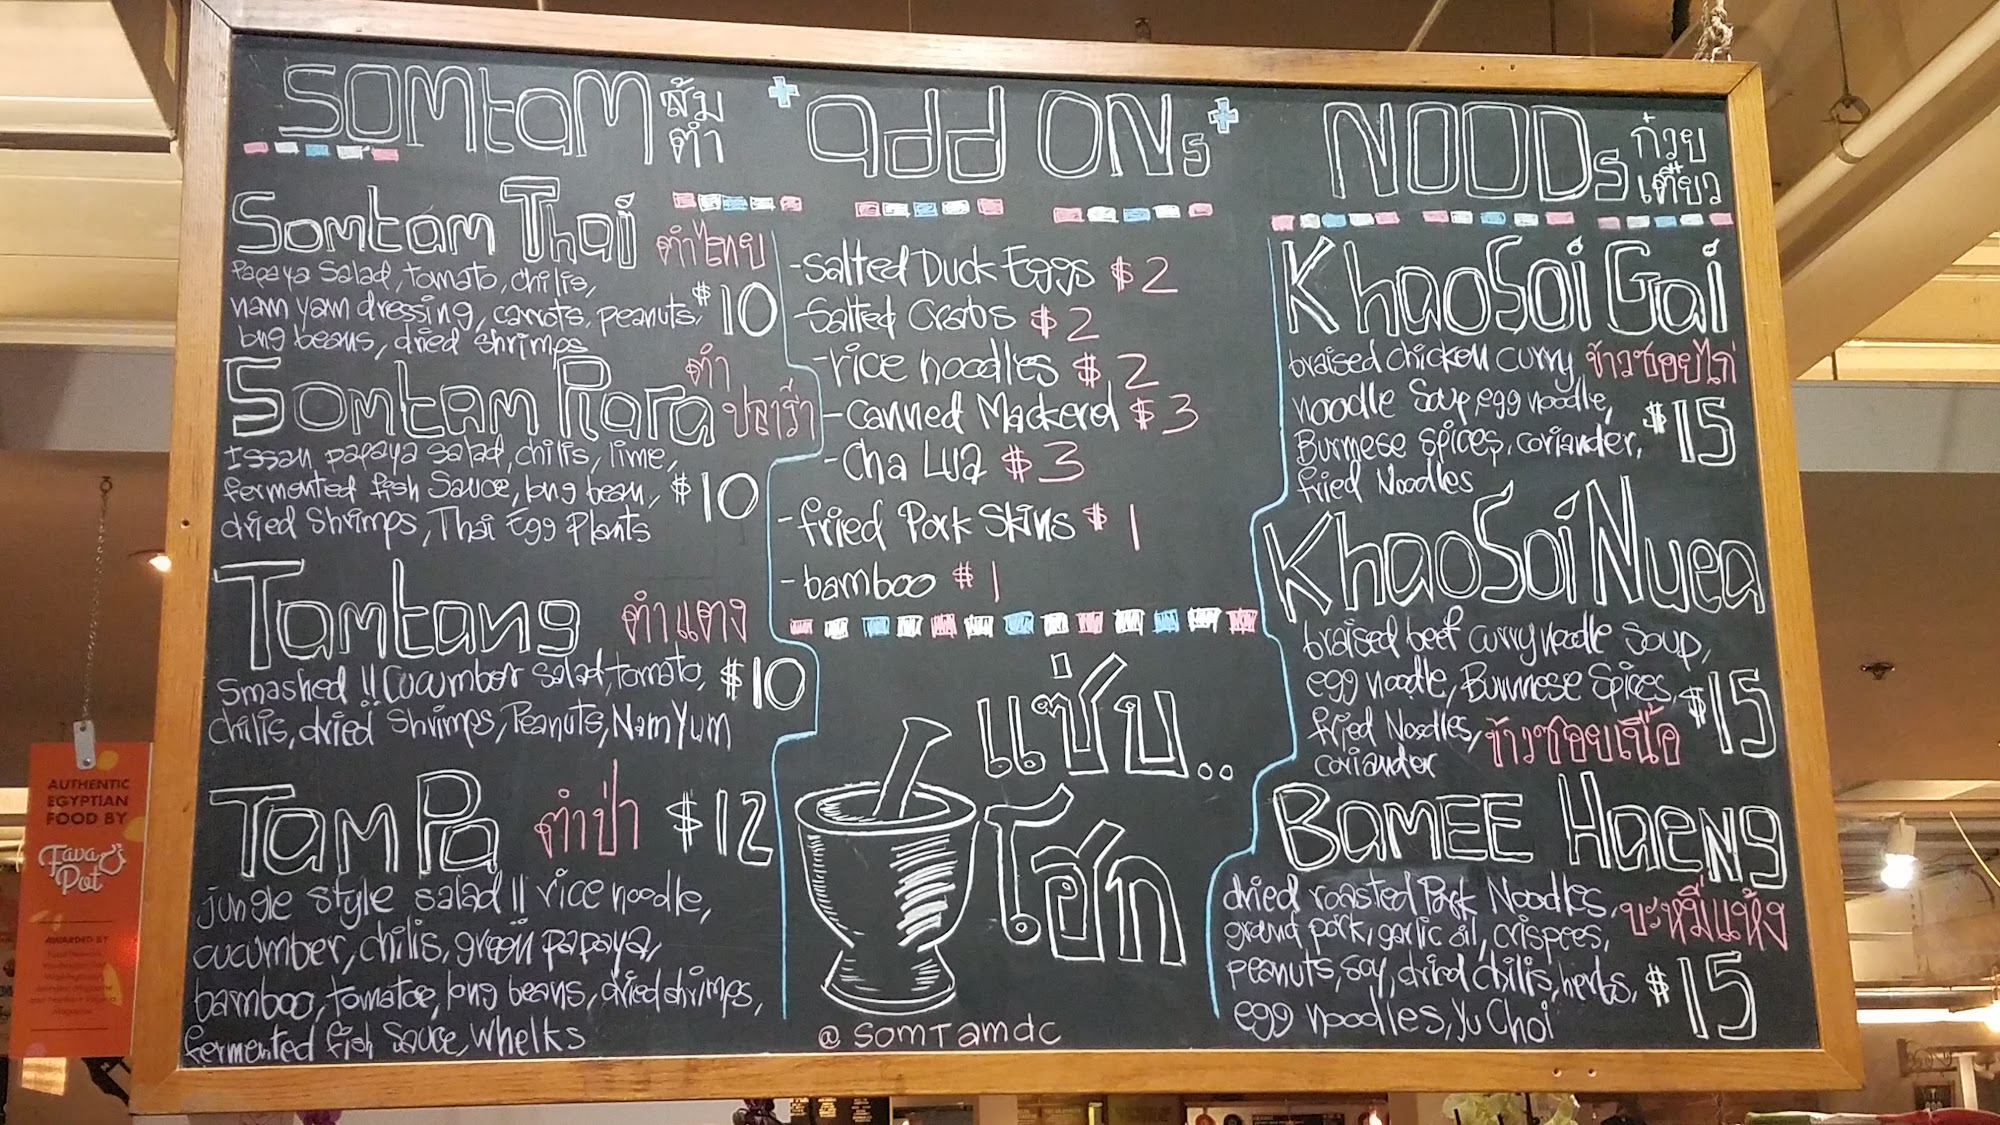 SOMtaM ส้ม
ตำ
Somtam Thai ตำไทย
Papaya Salad, tomato, chilis,
nam yam dressing, carrots, peanuts, $10
long beans, dried shrimps
Somtam Plara ตำ
ปลาร้า
Issan papaya salad, chilis, lime,
fermented fish Sauce, long bean, $10
dried Shrimps, Thai Egg Plants
Tamtang ตำแตง
Smashed !! Cucumber Salad, tomato, $10
Chilis, dried Shrimps, Peanuts, Nam Yum
Tam Pa ตำป่า $12
jungle style salad !! rice noodle,
cucumber, chilis, green papaya,
bamboo, tomatoe, long beans, dried shrimps,
fermented fish Sauce, Whelks
+ add ONs +
-Salted Duck Eggs $2
-Salted Crabs $2
-rice noodles $2
-Canned Mackerel $3
-Cha Lua $3
-fried Pork Skins $1
-bamboo $1
แซ่บ..
โอ้ก
@somtamdc
NOODs ก๋วย
เตี๋ยว
KhaoSoi Gai
braised chicken curry ข้าวซอยไก่
noodle Soup, egg noodle, $15
Burmese Spices, coriander,
fried Noodles
KhaoSoi Nuea
braised beef curry noodle Soup,
egg noodle, Burmese Spices, $15
fried Noodles, ข้าวซอยเนื้อ
coriander
BaMEE Haeng
dried roasted Pork Noodles, บะหมี่แห้ง
ground pork, garlic oil, crispees,
peanuts, soy, dried chilis, herbs, $15
egg noodles, Yu Choi
AUTHENTIC
EGYPTIAN
FOOD BY
Fava
Pot
AWARDED BY